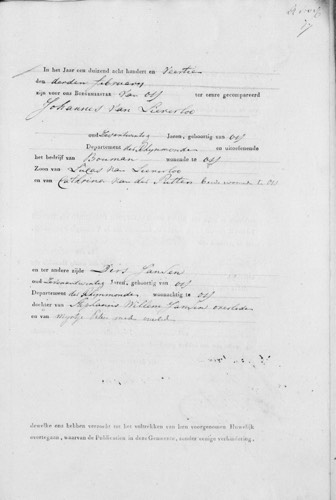 In het Jaar een duizend acht honderd en Veertien
den derden februarij
zijn voor ons Burgemeester van Oss ter eenre gecompareerd
Johannes van Lieverloo
oud Jaren, geboortig van Oss
Departement der Rhynmonden en uitoefenende
het bedrijf van Bouman wonende te Oss
Zoon van Lucas van Lieverloo
en van Catharina van der Putten beide wonende te Oss
en ter andere zijde Dirs Jansen
oud Jaren, geboortig van Oss
Departement der Rhynmonden woonachtig te Oss
dochter van Willem Jansen
en van mede
dewelke ons hebben verzocht tot het voltrekken van hun voorgenomen Huwelijk
overtegaan, waarvan de Publicatien in deze Gemeente, zonder eenige verhindering,